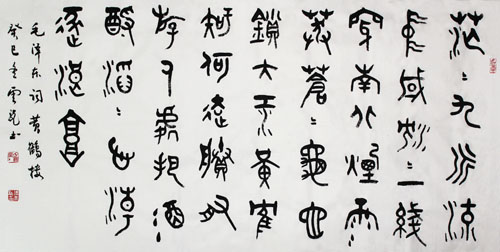 茫〻九派流
中國沈〻一線
穿南北煙雨
莽蒼〻龜蛇
鎖大江黃鶴
知何去賸有
游人處把酒
酹滔〻心潮
逐浪高
毛泽东词黄鹤楼
癸巳冬雲书